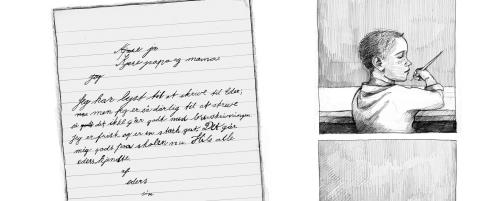 Kjære papa og mama
Jeg
Jeg har lyst til at skrive til Eder,
men jeg er så dårlig til at skrive
så godt det ikke går godt med brevskrivningen.
Jeg er frisk og er en stærk gut. Det går
mig godt fra skolen nu. Hils alle
eders kjendte.
af
eders